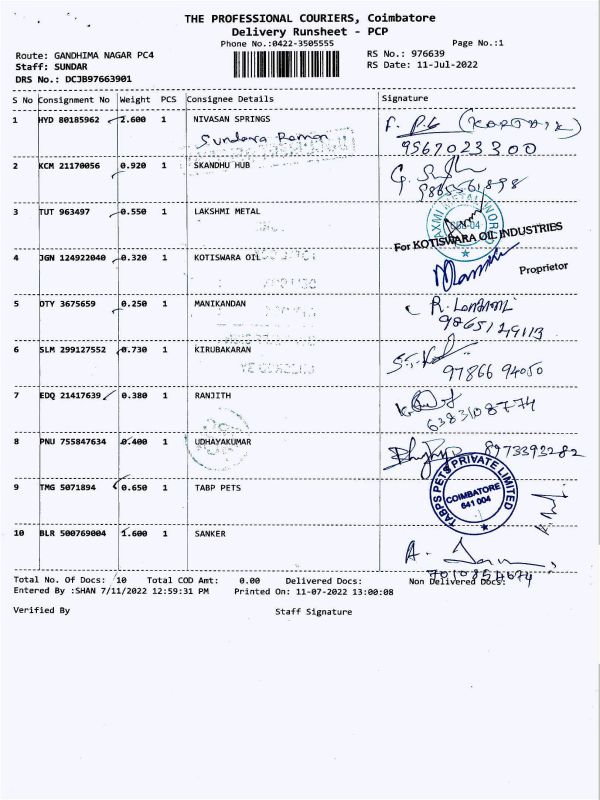 THE PROFESSIONAL COURIERS, Coimbatore
Delivery Runsheet - PCP
Phone No.:0422-3505555
Page No.:1
Route: GANDHIMA NAGAR PC4
RS No.: 976639
Staff: SUNDAR
RS Date: 11-Jul-2022
DRS No.: DCJB97663901
S No Consignment No Weight PCS Consignee Details Signature
1 HYD 80185962 2.600 1 NIVASAN SPRINGS
Sundara Raman
9567023300
2 KCM 21170056 0.920 1 SKANDHU HUB
3 TUT 963497 0.550 1 LAKSHMI METAL
For KOTISWARA OIL INDUSTRIES
4 JGN 124922040 0.320 1 KOTISWARA OIL
Proprietor
5 DTY 3675659 0.250 1 MANIKANDAN
6 SLM 299127552 0.730 1 KIRUBAKARAN
97866 94050
7 EDQ 21417639 0.380 1 RANJITH
6383108774
8 PNU 755847634 0.400 1 UDHAYAKUMAR
8973393282
9 TMG 5071894 0.650 1 TABP PETS
TABPS PETS PRIVATE LIMITED
COIMBATORE
641 004
10 BLR 500769004 1.600 1 SANKER
Total No. Of Docs: 10 Total COD Amt: 0.00 Delivered Docs: Non Delivered Docs:
Entered By :SHAN 7/11/2022 12:59:31 PM Printed On: 11-07-2022 13:00:08
Verified By Staff Signature